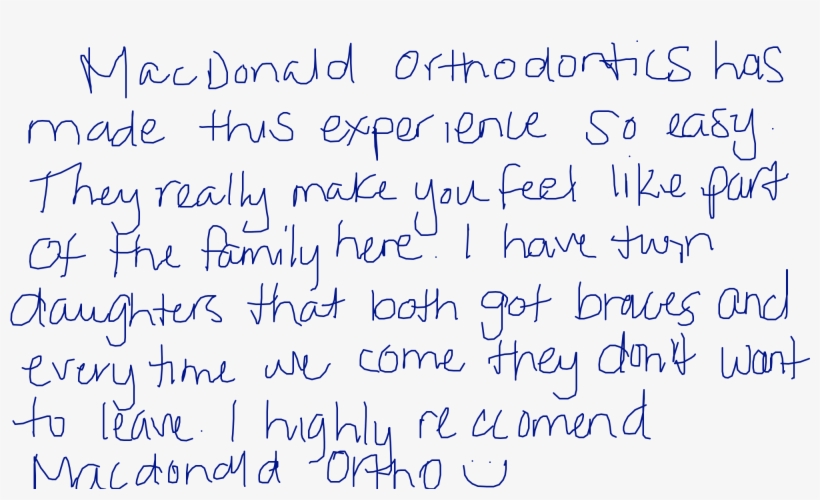 MacDonald Orthodontics has
made this experience so easy.
They really make you feel like part
of the family here. I have twin
daughters that both got braces and
every time we come they don't want
to leave. I highly reccomend
Macdonald Ortho ☺